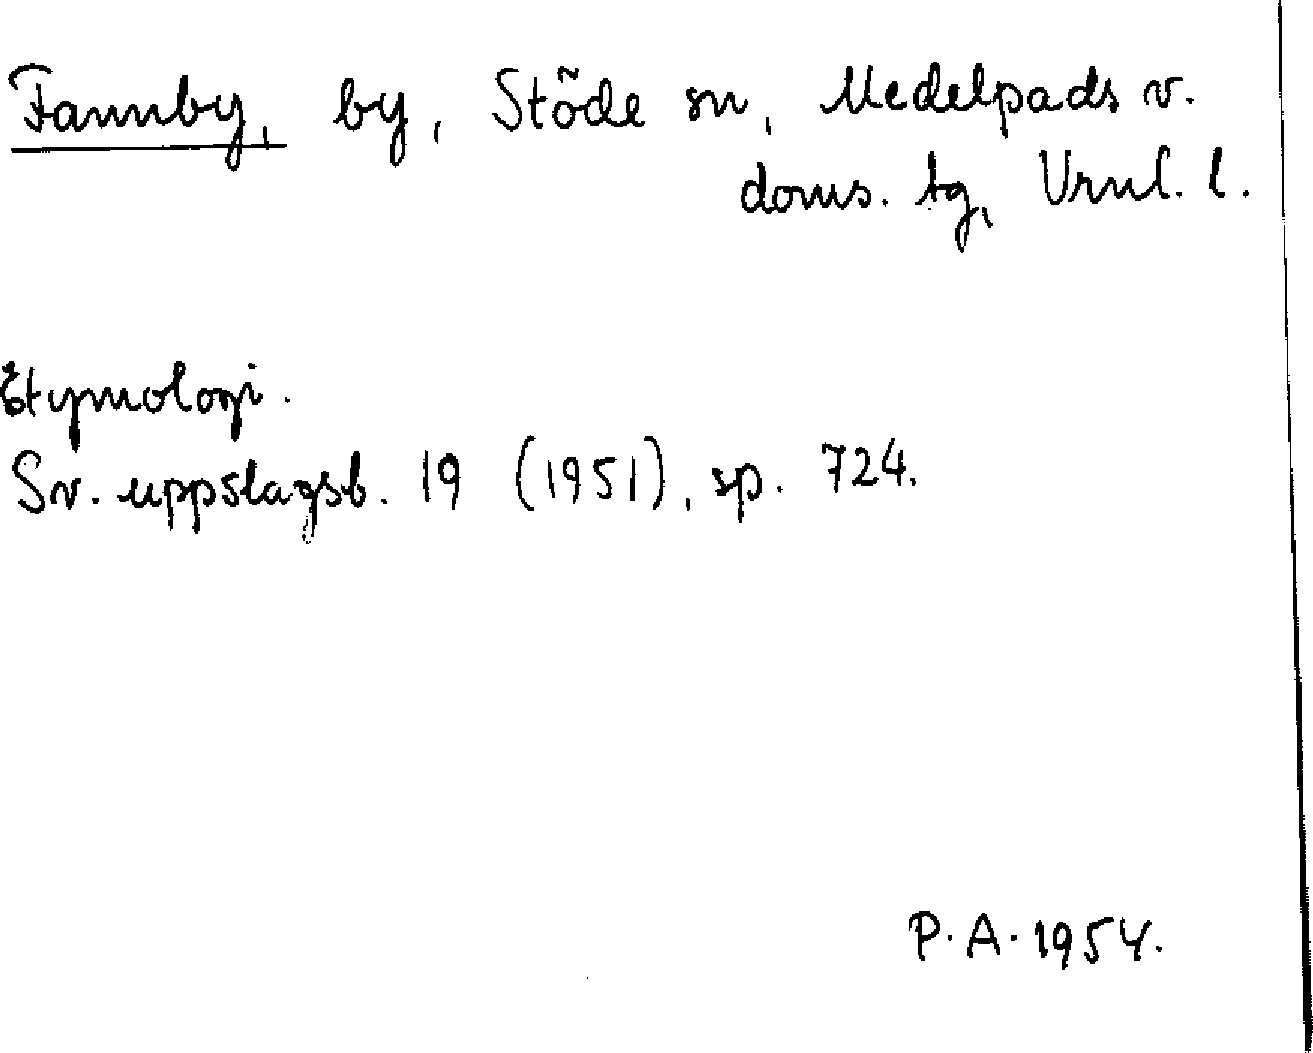 Fannby, by, Stöde sn, Medelpads v.
doms. tg, Vrnl. l.
Etymologi.
Sv. uppslagsb. 19 (1951), sp. 724.
P. A. 1954.